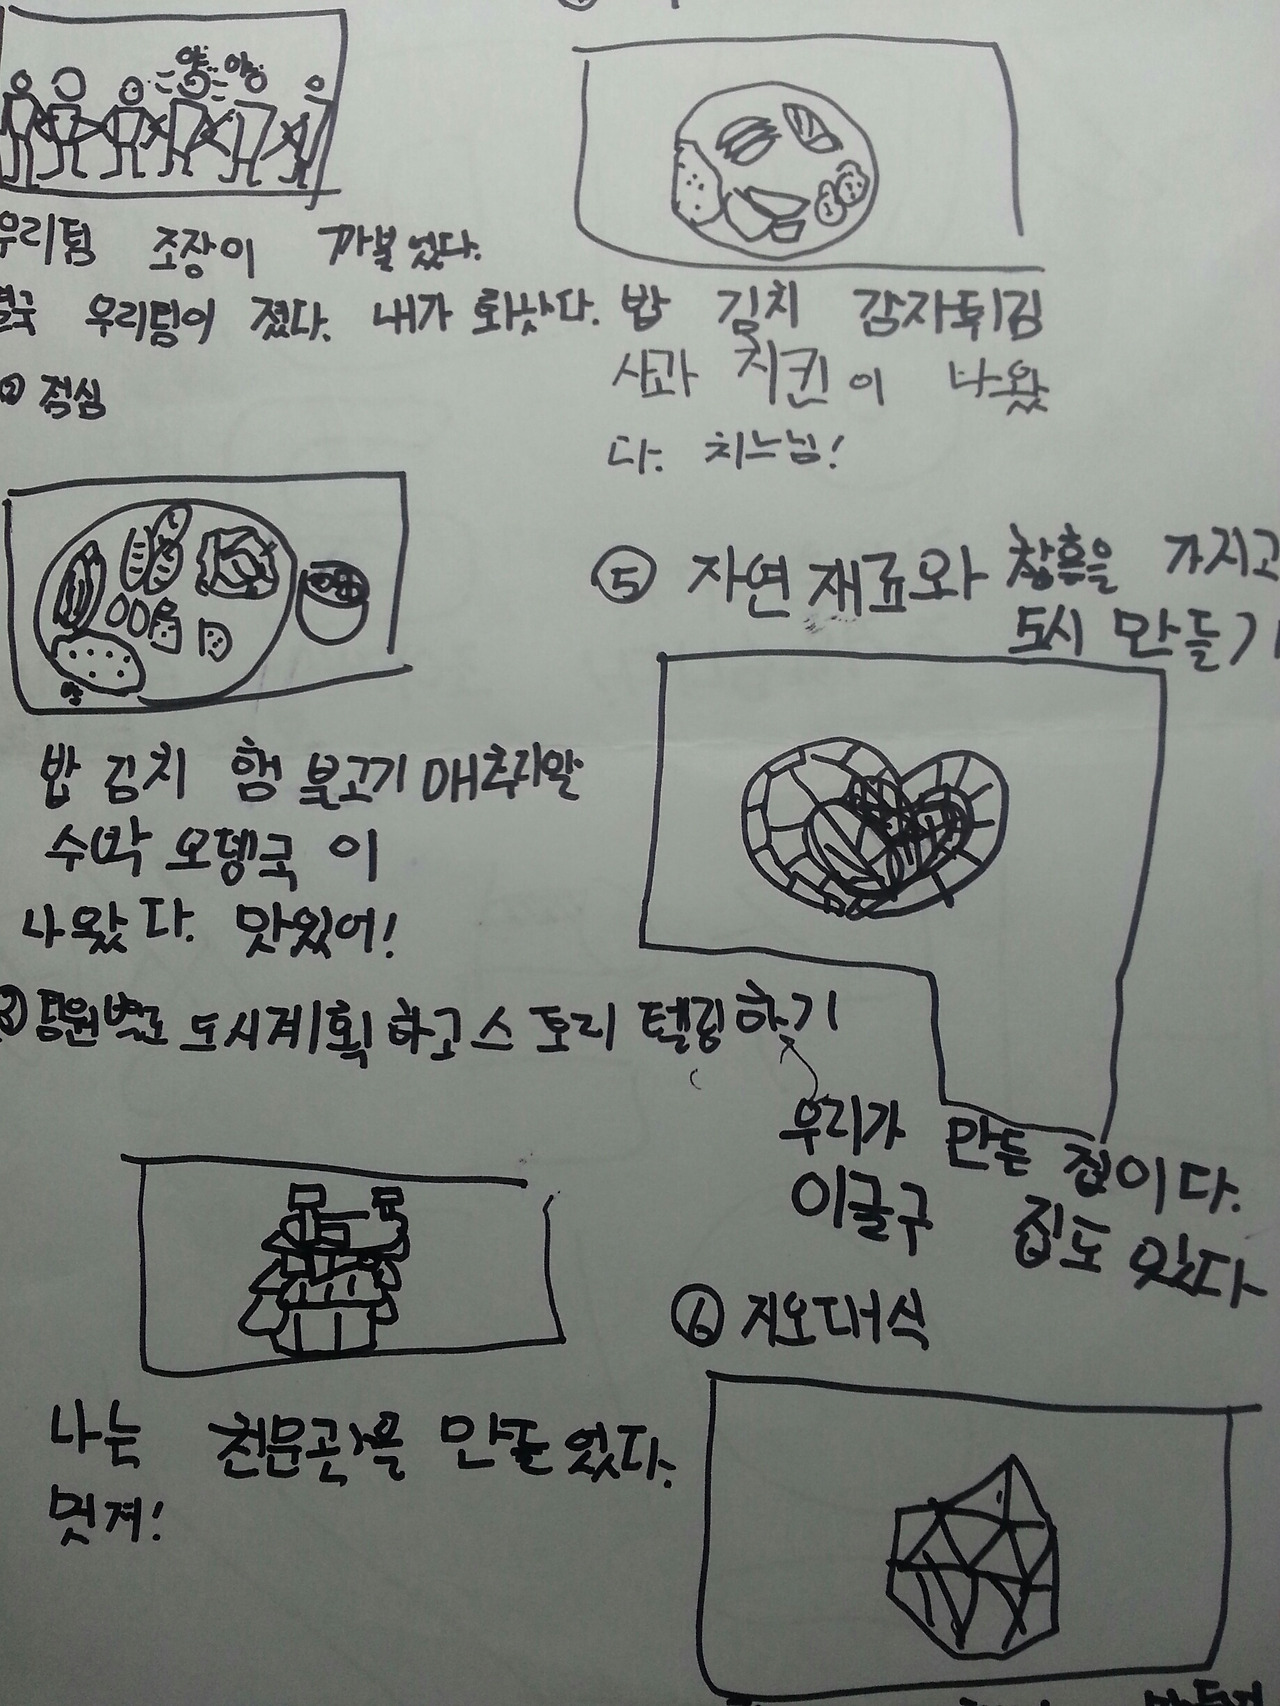 야 야
우리팀 조장이 까불었다.
결국 우리팀이 졌다. 내가 화났다.
② 점심
밥 김치 햄 불고기 매추리알
수박 오뎅국 이
나왔다. 맛있어!
③ 팀원별로 도시계획 하고 스토리 텔링하기
나는 천문관을 만들었다.
멋져!
밥 김치 감자튀김
사과 치킨이 나왔
다. 치느님!
⑤ 자연 재료와 찰흙을 가지고
도시 만들기
우리가 만든 집이다.
이글구 집도 있다
⑥ 지오데식